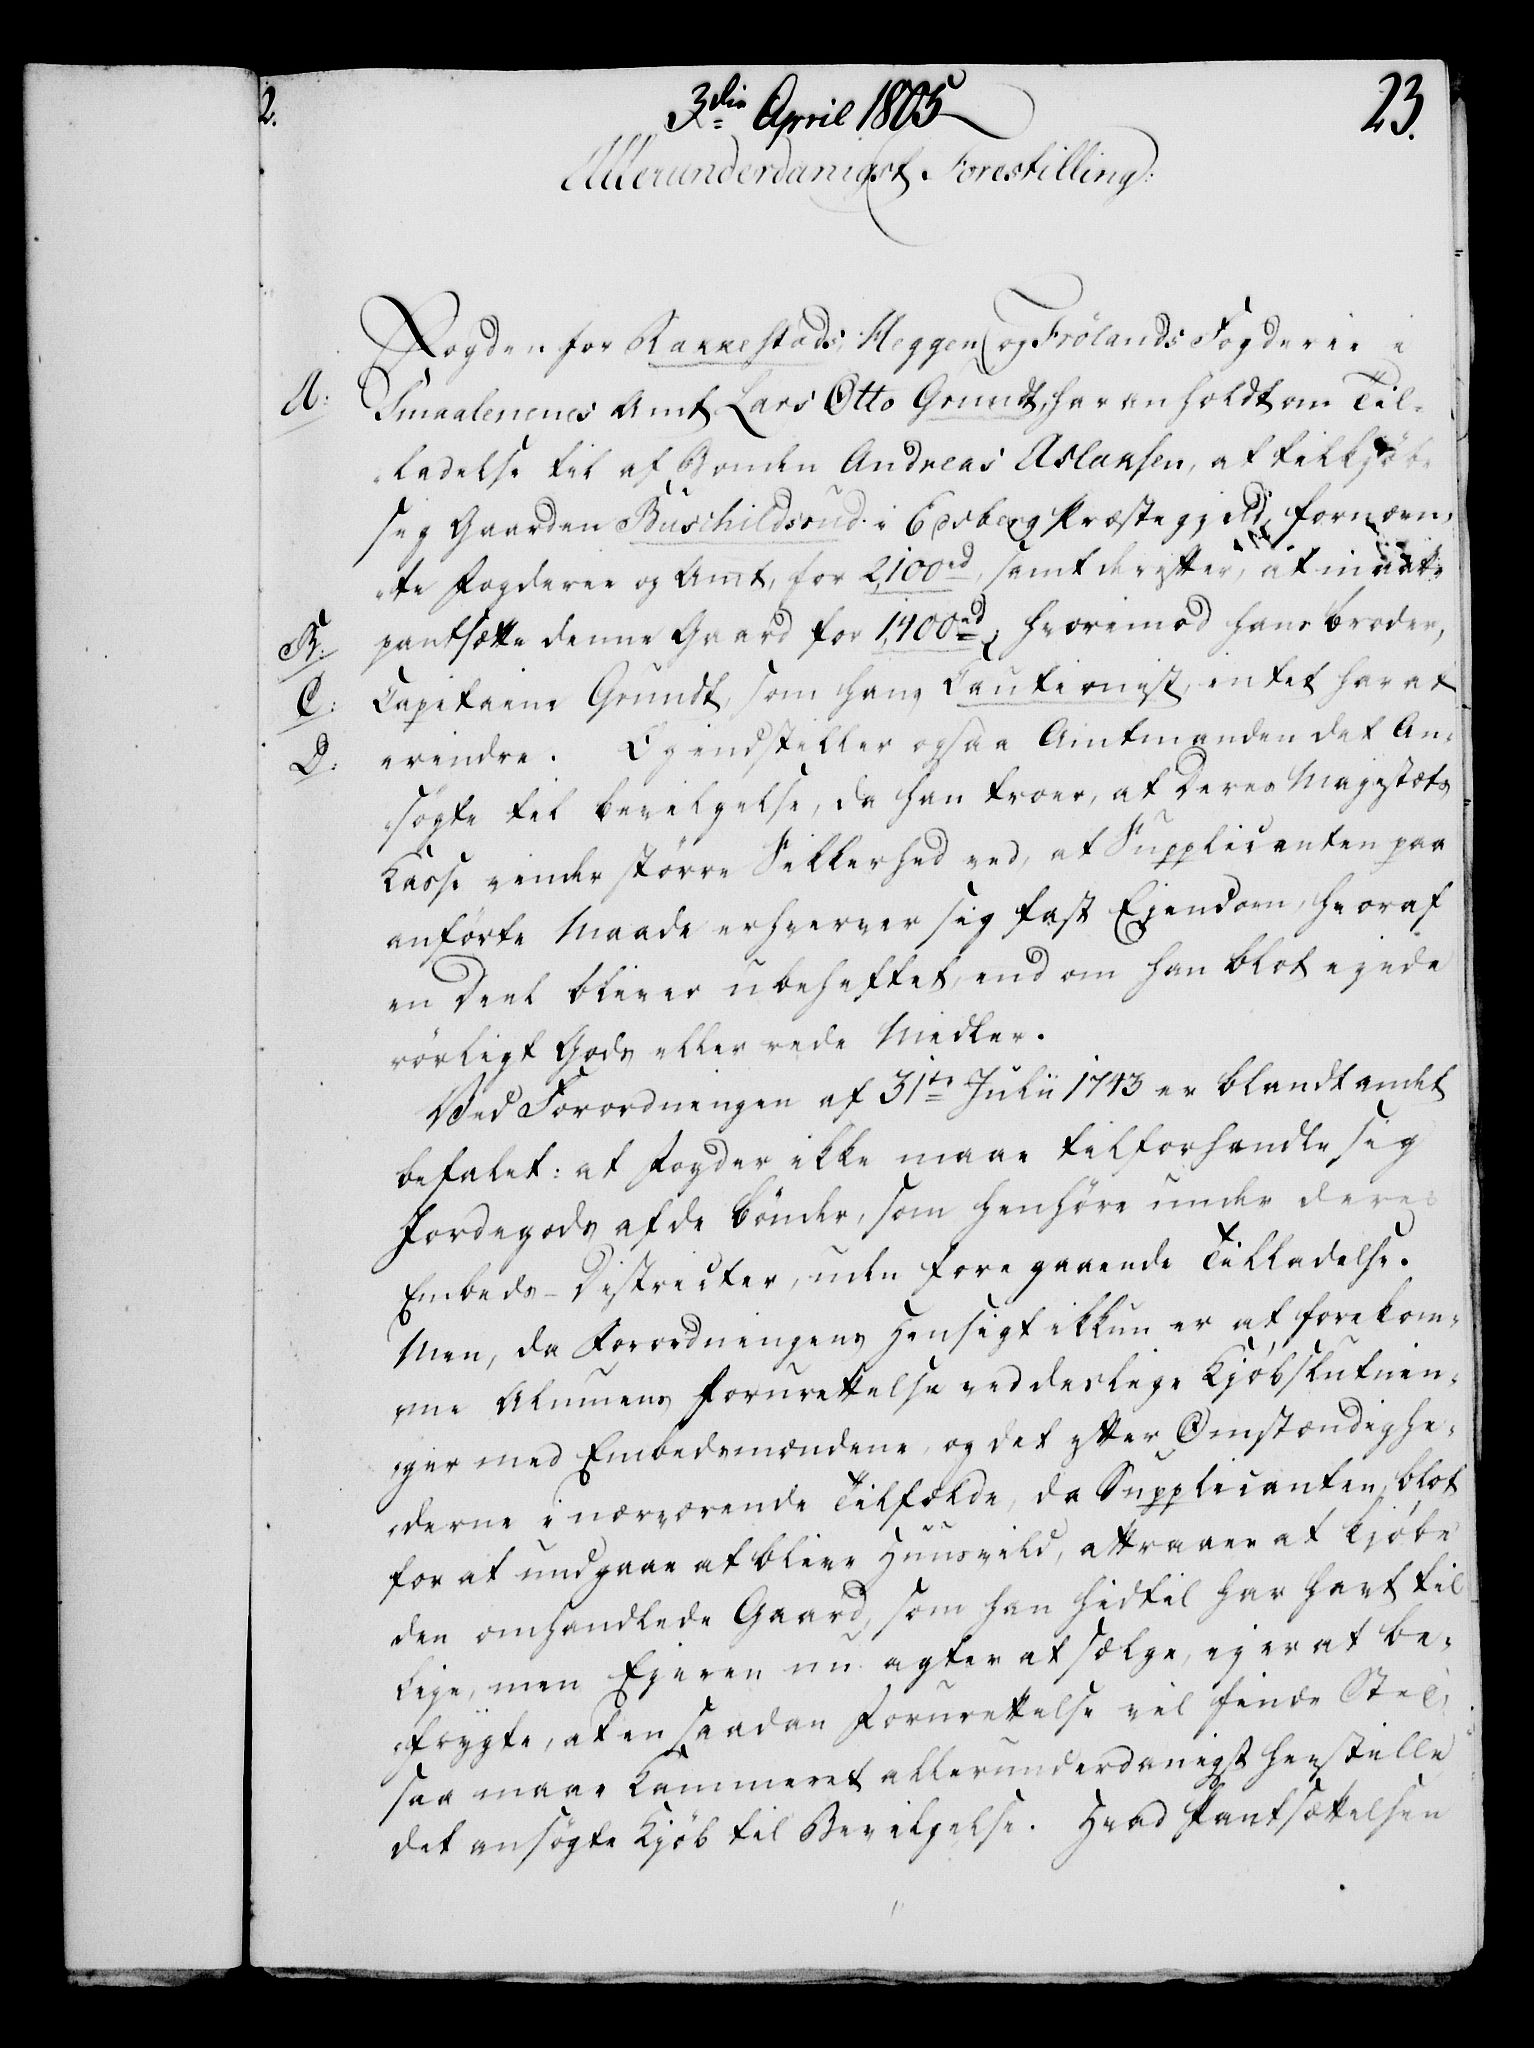 2.
3die April 1805
23.
Allerunderdanigst Forestilling:
Fogden for Rakkestads, Heggen og Frölands Fogderie i
A: Smaalenenes Amt Lars Otto Grundt, har anholdt om Til-
ladelse til af Bonden Andreas Aslaksen, at tilkjöbe
sig Gaarden Buschildsrud i Edsberg Præstegjeld, fornævn-
te Fogderie og Amt, for 2,100rd, samt derefter, at maatte
B: pantsætte denne Gaard for 1,400rd, hvorimod hans Broder,
C: Capitaine Grundt, som hans Cautionist, intet har at
D: erindre. Og indstiller ogsaa Amtmanden det An-
søgte til Bevilgelse, da han troer, at Deres Majestæts
Kasse vinder större Sikkerhed ved, at Supplicanten paa
anförte Maade erhverver sig fast Ejendom, hvoraf
en Deel bliver ubeheftet, end om han blot ejede
rörligt Gods eller rede Midler.
Ved Forordningen af 31te Julii 1743 er blandt andet
befalet: at Fogder ikke maae tilforhandle sig
Jordegods af de Bönder, som henhöre under deres
Embeds-Districter, uden foregaaende Tilladelse.
Men, da Forordningens Hensigt ikkun er at forekom-
me Almuens Forurettelse ved deslige Kjöbslutnin-
ger med Embedsmændene, og det efter Omstændighe-
derne i nærværende Tilfælde, da Supplicanten, blot
for at undgaae at blive Huusvild, attraaer at kjöbe
den omhandlede Gaard, som han hidtil har havt til
Leje, men Ejeren nu agter at sælge, ej er at be-
frygte, at en saadan Forurettelse vil finde Sted,
saa maae Kammeret allerunderdanigst henstille
det ansögte Kjöb til Bevilgelse. Hvad Pantsættelsen